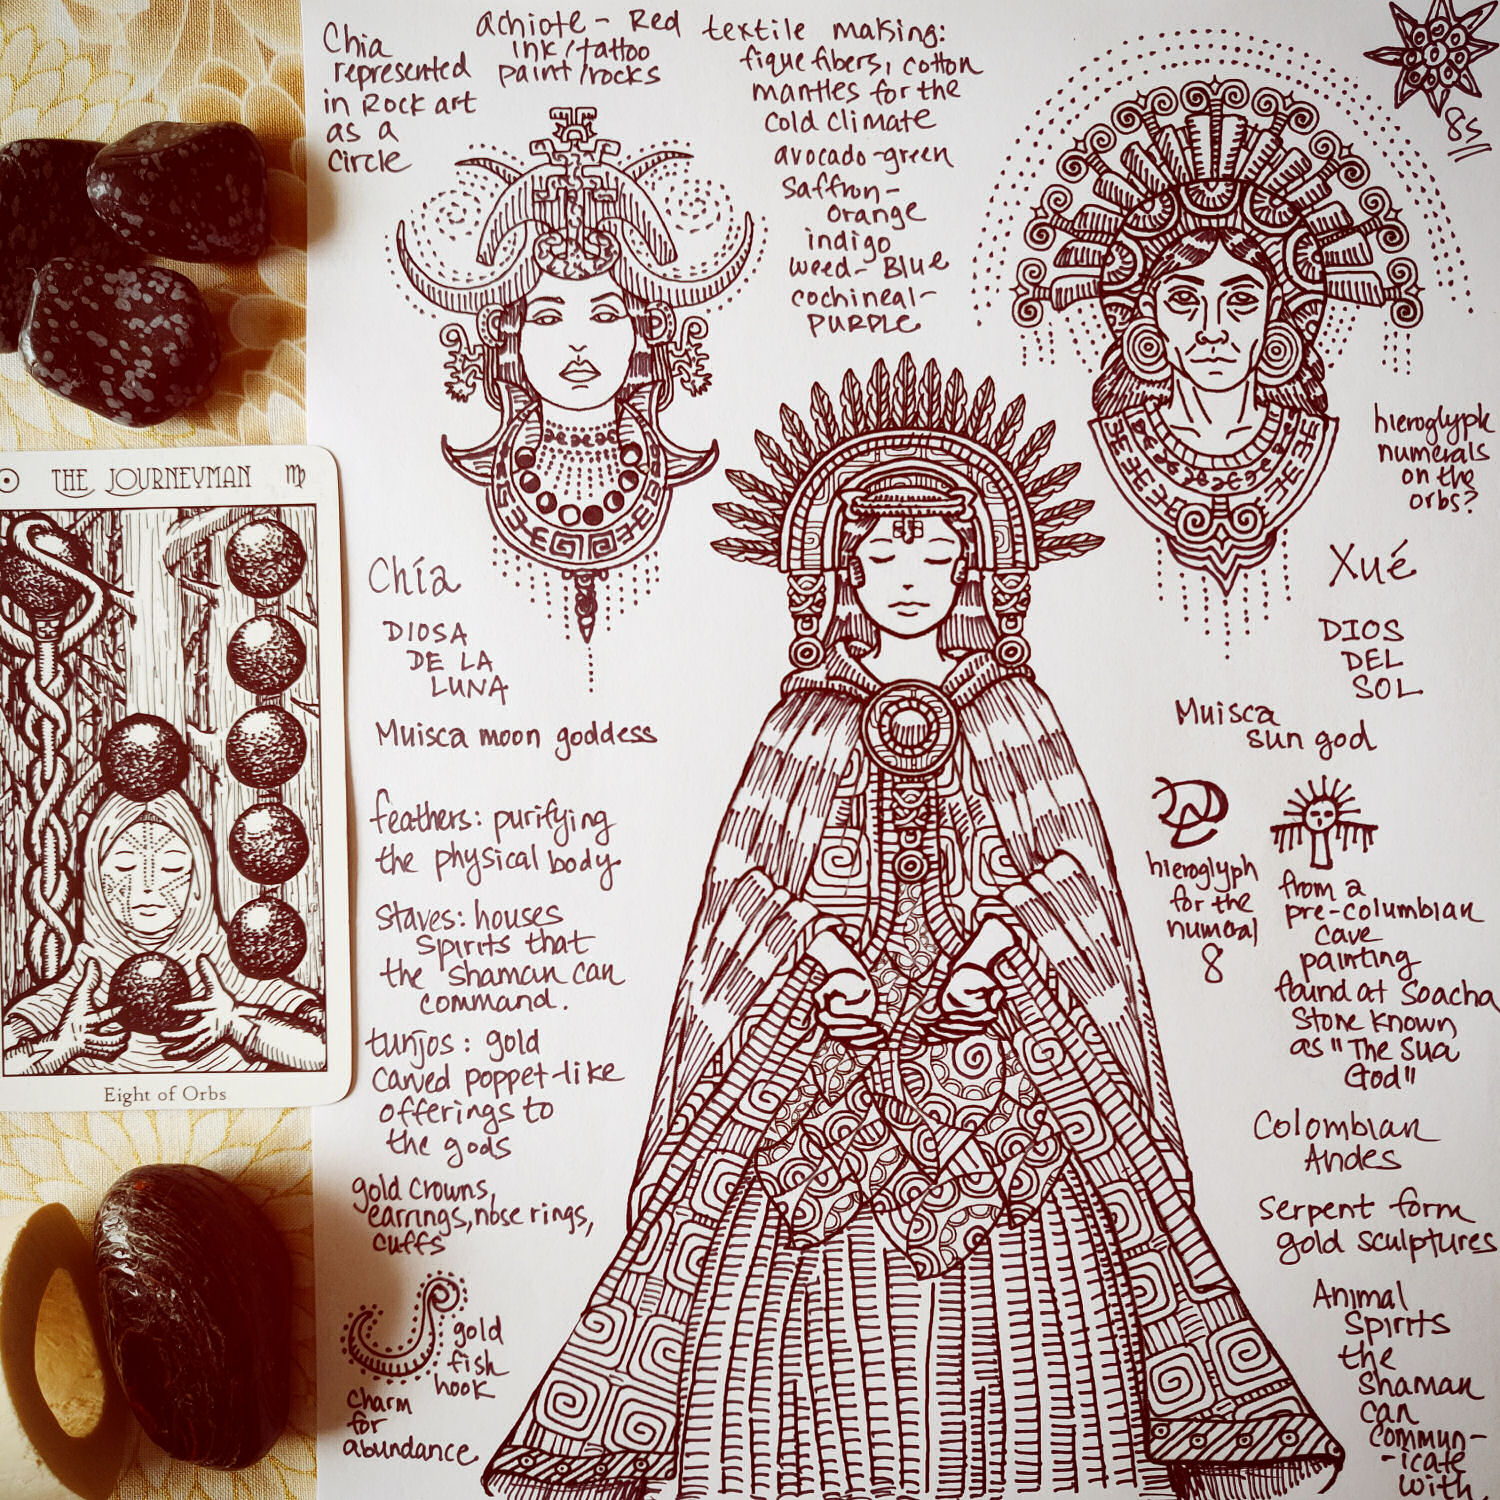 Chia
represented
in Rock art
as a
circle
achiote - Red
ink/tattoo
paint/rocks
textile making:
fique fibers, cotton
mantles for the
cold climate
avocado-green
saffron-
orange
indigo
weed- Blue
cochineal-
PURPLE
8S
hieroglyph
numerals
on the
orbs?
THE JOURNEYMAN
Eight of Orbs
Chía
DIOSA
DE LA
LUNA
Muisca moon goddess
feathers: purifying
the physical body
staves: houses
spirits that
the shaman can
command.
tunjos: gold
carved poppet-like
offerings to
the gods
gold crowns,
earrings, nose rings,
cuffs
gold
fish
hook
charm
for
abundance
Xué
DIOS
DEL
SOL
Muisca
sun god
hieroglyph
for the
numeral
8
from a
pre-columbian
cave
painting
found at Soacha
Stone known
as "The Sua
God"
Colombian
Andes
serpent form
gold sculptures
Animal
Spirits
the
shaman
can
commun-
-icate
with